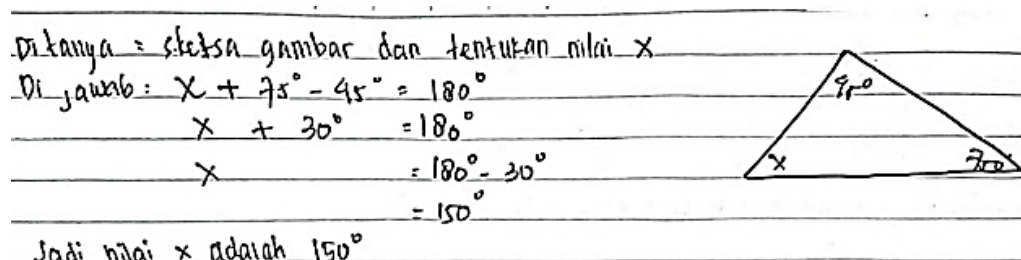 Ditanya = sketsa gambar dan tentukan nilai x
Di jawab : x + 75° - 45° = 180°
x + 30° = 180°
x = 180° - 30°
= 150°
Jadi nilai x adalah 150°
45°
x